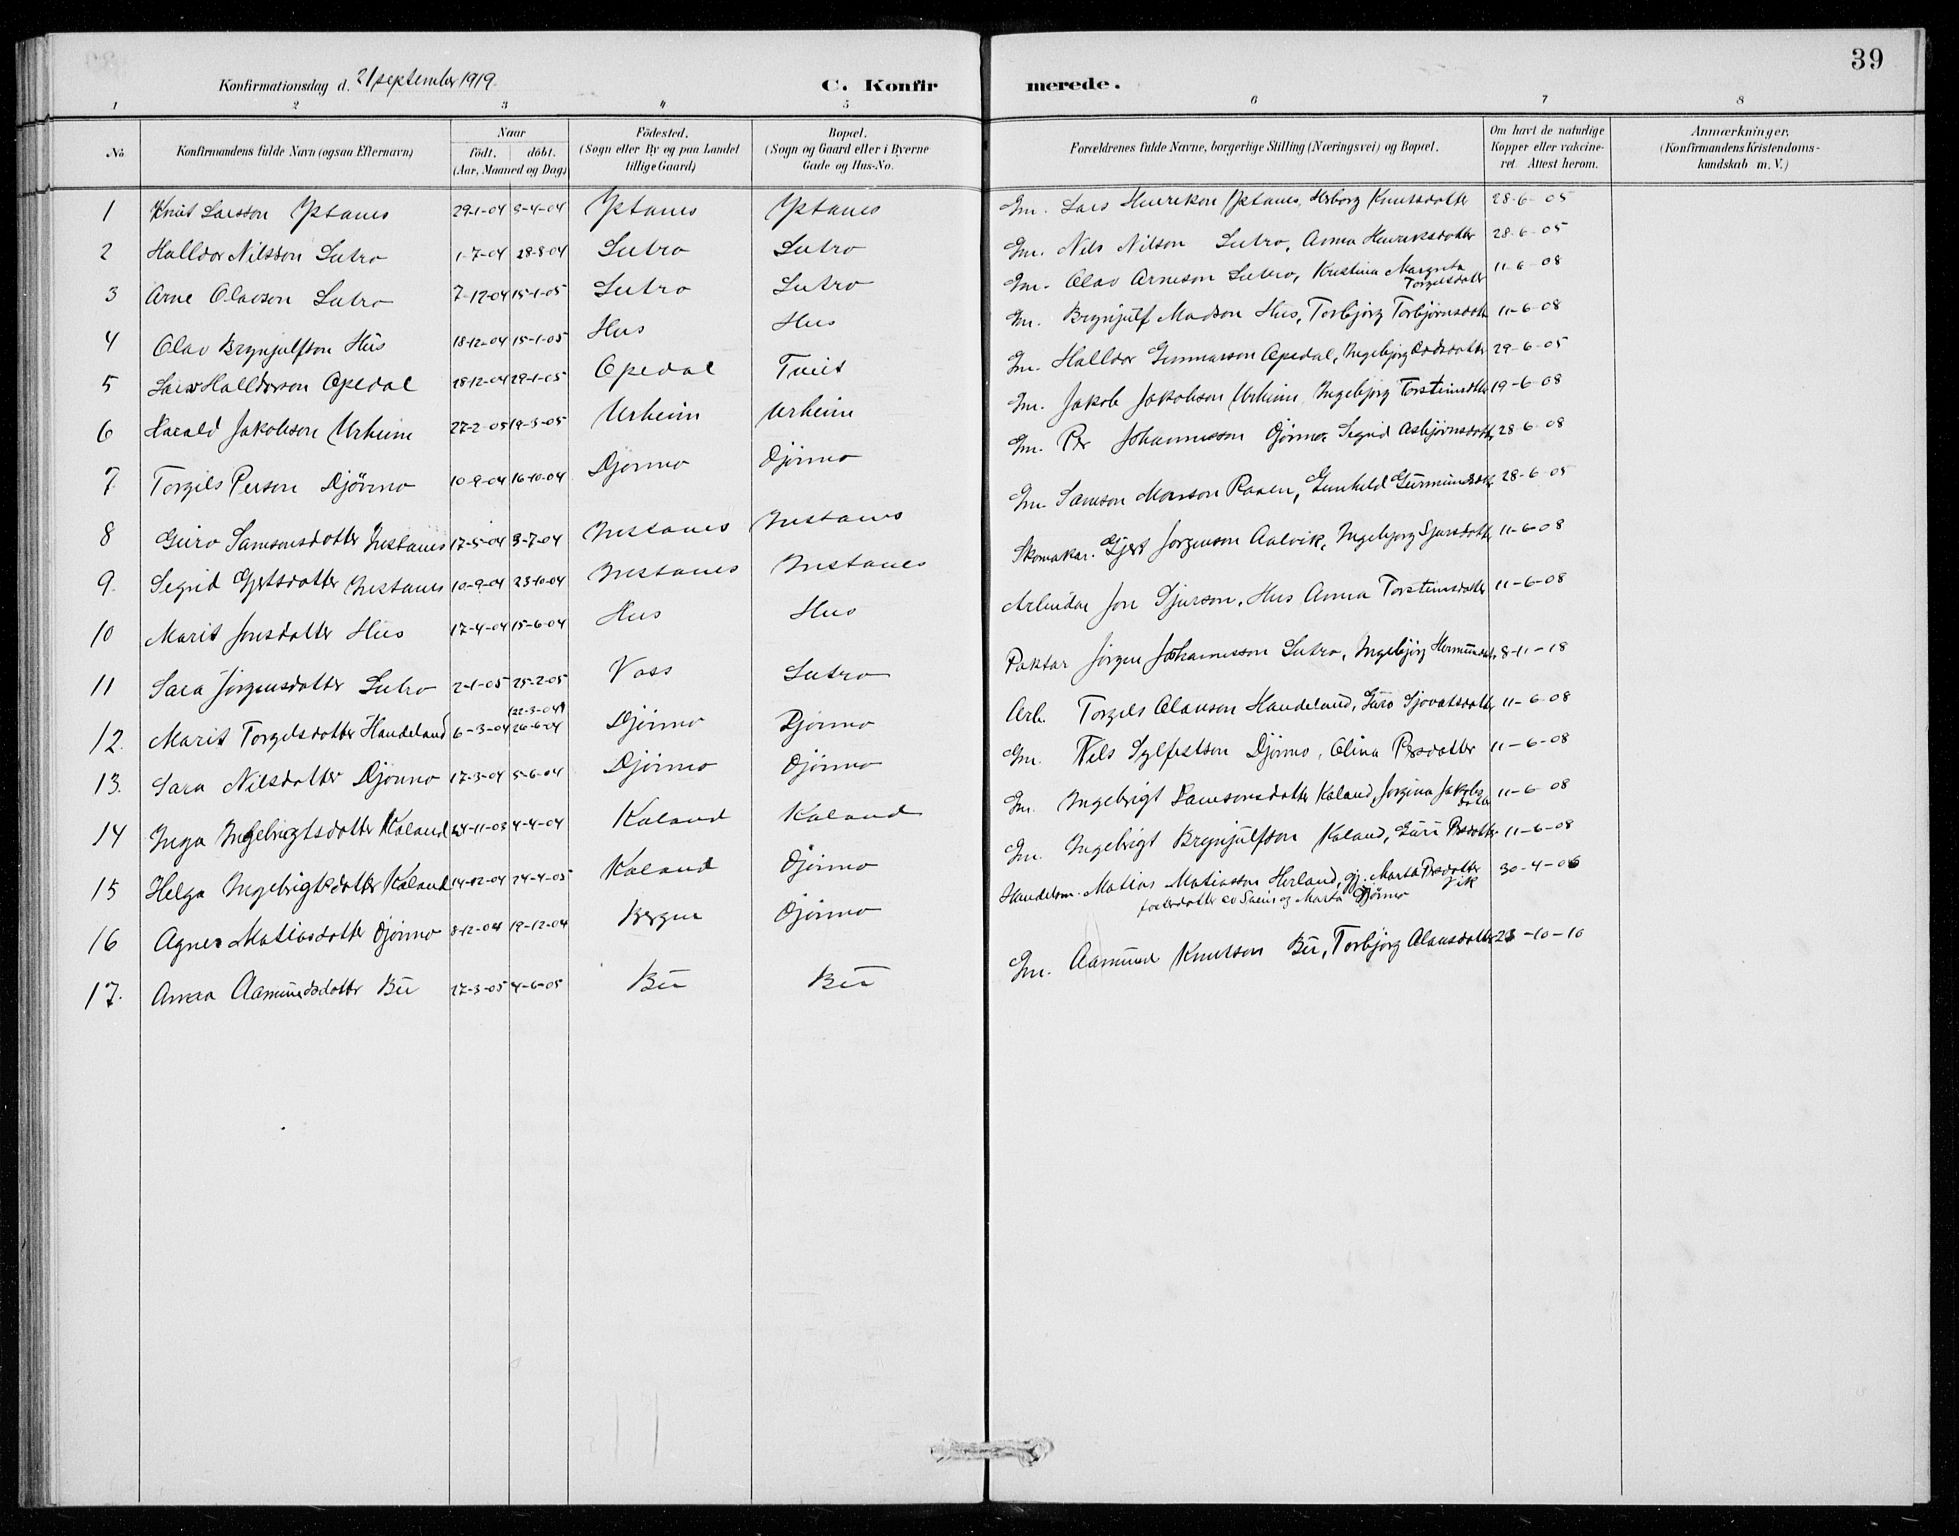 39
Konfirmationsdag d. 21 september 1919. C. Konfirmerede.
1 2 3 4 5 6 7 8
No. Konfirmandens fulde Navn (ogsaa Efternavn) Naar födt. döbt. (Aar, Maaned og Dag) Födested. (Sogn eller By og paa Landet tillige Gaard) Bopæl. (Sogn og Gaard eller i Byerne Gade og Hus-No. Forældrenes fulde Navne, borgerlige Stilling (Næringsvei) og Bopæl. Om havt de naturlige Kopper eller vakcineret. Attest herom. Anmærkninger. (Konfirmandens Kristendomskundskab m. V.)
1 Knut Larsson Ystanes 29-1-04 9-4-04 Ystanes Ystanes Gm. Lars Henrikson Ystanes, Herborg Knutsdotter 28-6-05
2 Halldor Nilsson Lutro 1-7-04 28-8-04 Lutro Lutro Gm. Nils Nilson Lutro, Anna Henriksdotter 28-6-05
3 Arne Olavson Lutro 7-12-04 15-1-05 Lutro Lutro Gm. Olav Arneson Lutro, Kristina Margreta Torgilsdotter 11-6-08
4 Olav Brynjulfson Hus 18-12-04 15-1-05 Hus Hus Gm. Brynjulf Madson Hus, Torbjörg Torbjörnsdott 11-6-08
5 Lars Halldorson Opedal 28-12-04 29-1-05 Opedal Tveit Gm. Halldor Gunnarson Opedal, Ingebjörg Oddsdotter 29-6-05
6 Harald Jakobson Urheim 27-2-05 19-3-05 Urheim Urheim Gm. Jakob Jakobson Urheim, Ingebjörg Torsteinsdotter 19-6-08
7. Torgils Person Djönno 10-9-04 16-10-04 Djönno Djönno Gm. Per Johannesson Djönno, Sigrid Asbjörnsdotter 28-6-08
8 Guro Samsonsdotter Instanes 17-5-04 3-7-04 Instanes Instanes Gm. Samson Monson Raaen, Gunhild Gurmundsd. 28-6-05
9. Sigrid Gjertsdotter Instanes 10-9-04 23-10-04 Instanes Instanes Skomakar. Gjert Jorgenson Aalvik, Ingebjorg Sjursdott 11-6-08
10 Marit Jonsdotter Hus 17-4-04 15-6-04 Hus Hus Arbeidar Jon Sjurson, Hus Anna Torsteinsdotter 11-6-08
11 Sara Jörgensdotter Lutro 2-1-05 25-2-05 Voss Lutro Paktar Jörgen Johannesson Lutro, Ingebjörg Hermundsd. 8-11-18
12. Marit Torgilsdotter Handeland 6-3-04 (22-3-04) 26-6-04 Djönno Djönno Arb. Torgils Olavson Handeland, Guro Sjovatsdotter 11-6-08
13. Sara Nilsdotter Djönno 17-3-04 5-6-04 Djönno Djönno Gm. Nils Sylfestson Djönno, Olina Persdotter 11-6-08
14 Inga Ingebrigtsdotter Kaland 24-11-03 4-4-04 Kaland Kaland Gm. Ingebrigt Samsonsdotter Kaland, Jorgina Jakobsdotter 11-6-08
15 Helga Ingebrigtsdotter Kaland 14-12-04 24-4-05 Kaland Djönno Gm. Ingebrigt Brynjulfson Kaland, Guri Persdotter 11-6-08
16 Agnes Matiasdotter Djönno 8-12-04 19-12-04 Bergen Djönno Handelsm. Matias Matiasson Herland, gj. Marta Persdotter Vik 30-4-06
fosterdotter av Svein og Marta Djönno
17. Anna Aamundsdotter Bu 27-3-05 4-6-05 Bu Bu Gm. Aamund Knutson Bu, Torbjörg Olavsdotter 23-10-10